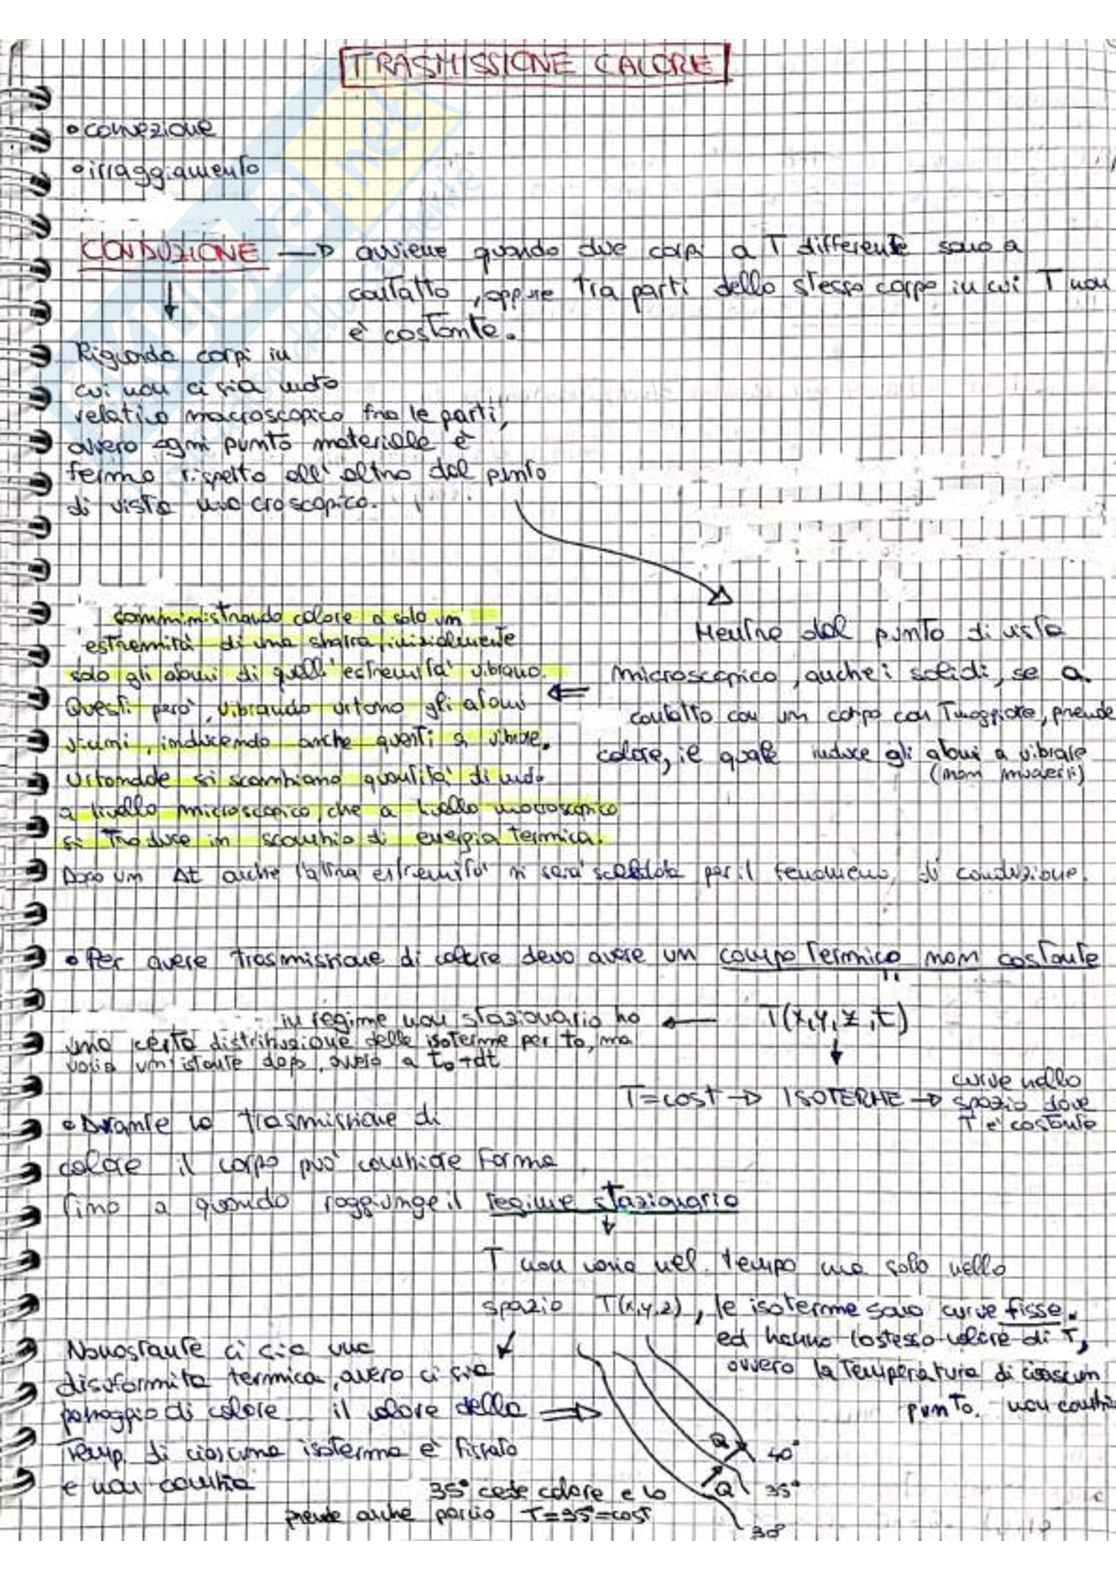 TRASMISSIONE CALORE
• convezione
• irraggiamento
CONDUZIONE → avviene quando due corpi a T differente sono a
contatto, oppure tra parti dello stesso corpo in cui T non
è costante.
Riguarda corpi in
cui non ci sia moto
relativo macroscopico fra le parti,
ovvero ogni punto materiale è
fermo rispetto all'altro dal punto
di vista macroscopico.
Mentre dal punto di vista
microscopico, anche i solidi, se a
contatto con un corpo con T maggiore, prende
calore, il quale induce gli atomi a vibrare
(non muoversi)
somministrando calore a solo un
estremità di una sbarra, inizialmente
solo gli atomi di quell'estremità vibrano.
Questi però, vibrando urtano gli atomi
vicini, inducendo anche questi a vibrare.
Urtandosi si scambiano quantità di moto
a livello microscopico, che a livello macroscopico
si traduce in scambio di energia termica.
Dopo un Δt anche l'altra estremità si sarà scaldata per il fenomeno di conduzione.
• Per avere trasmissione di calore devo avere un campo termico non costante
T(x,y,z,t)
in regime non stazionario ho ←
una certa distribuzione delle isoterme per t₀, ma
varia un istante dopo, ovvero a t₀+dt
T=cost → ISOTERME → curve nello
spazio dove
T è costante
• Durante la trasmissione di
calore il corpo può cambiare forma
fino a quando raggiunge il regime stazionario
T non varia nel tempo ma solo nello
spazio T(x,y,z), le isoterme sono curve fisse.
ed hanno lo stesso valore di T,
ovvero la temperatura di ciascun
punto non cambia
Nonostante ci sia una
disuformità termica, ovvero ci sia
passaggio di calore il valore della ⇒
Temp. di ciascuna isoterma è fissato
e non cambia
Q 40°
Q 35°
30°
35° cede calore e lo
prende anche perciò T=35°=cost